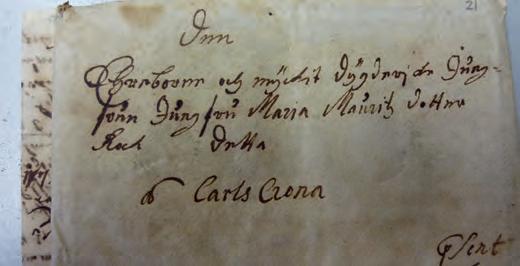 21
Den
Ähreborne och myckit dygderike Jung-
frun Jungfru Maria Mauritz dotter
detta
Carls Crona